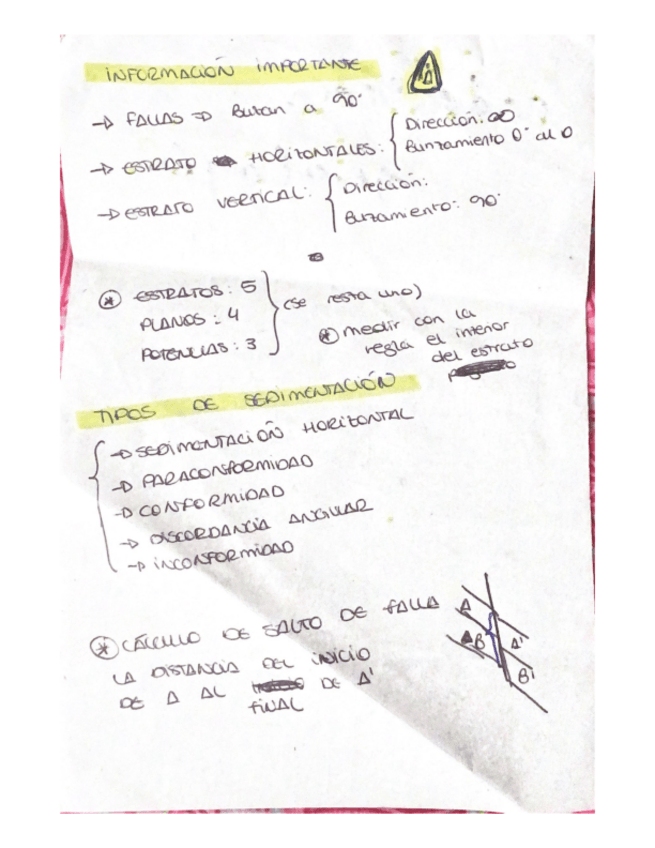 INFORMACIÓN IMPORTANTE
→ FALLAS ⇒ Buzan a 90°
→ ESTRATO HORIZONTALES: { Dirección: ∞
Bunzamiento 0° al 0
→ ESTRATO VERTICAL: { Dirección:
Bunzamiento: 90°
* ESTRATOS: 5
PLANOS: 4
POTENCIAS: 3
} (se resta uno)
* medir con la
regla el interior
del estrato
TIPOS DE SEDIMENTACIÓN
→ SEDIMENTACIÓN HORIZONTAL
→ PARACONFORMIDAD
→ CONFORMIDAD
→ DISCORDANCIA ANGULAR
→ INCONFORMIDAD
* CÁLCULO DE SALTO DE FALLA
LA DISTANCIA DEL INICIO
DE A AL DE A'
FINAL
A
B
A'
B'